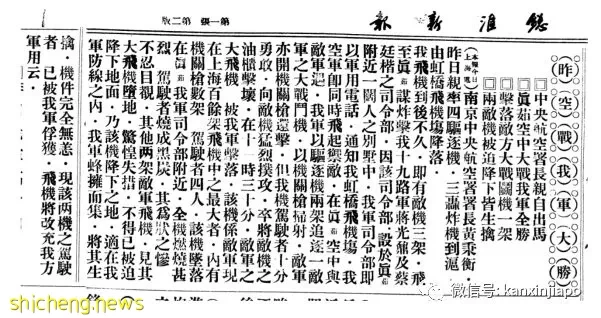 總滙新報
第一張 第二版
(昨)(空)(戰)(我)(軍)(大)(勝)
□中央航空署長親自出馬
□眞茹空中大戰我軍全勝
□擊落敵方大戰鬪機一架
□兩敵機被迫降下皆生擒
(本報昨日上海電)南京中央航空署署長黃秉衡。
昨日親率四驅逐機。三轟炸機到滬。
由虹橋飛機塲降落。
我飛機到後不久。即有敵機三架。飛
至眞茹。謀炸擊我十九路軍將光鼐及蔡
廷楷之司令部。因該司令部。設於眞茹
附近一闊人之別墅中。我軍司令部即
以軍用電話。通知我虹橋飛機塲。我
空軍卽同時飛起禦敵。在眞茹空中與
敵軍遇。我軍以驅逐機兩架追逐一敵
軍之大戰鬥機。以機關槍掃射。敵軍
亦開機關槍還擊。但我機駕駛者十分
勇敢。向敵機猛烈撲攻。卒將敵機之
油櫃擊壞。在十一時三十分。敵軍之
大飛機。被我軍擊落。該機係敵軍現
在上海百餘架飛機中之最大者。內有
機關槍數架。駕駛者四人。該機墜落
在眞茹我軍司令部附近。全機燃燒甚
烈。駕駛者燒成黑炭。其爲狀之慘。
不忍目覩。其他兩架敵軍飛機。見其
大飛機墮地。驚惶失措。不得已被迫
降下地面。乃該機降下之地。適在我
軍防線之內。我軍蜂擁而集。將其生
擒。機件完全無恙。現該兩機之駕駛
者。已被我軍俘獲。飛機將改充我方
軍用云。
shicheng.news
微信号: kanxinjiapo